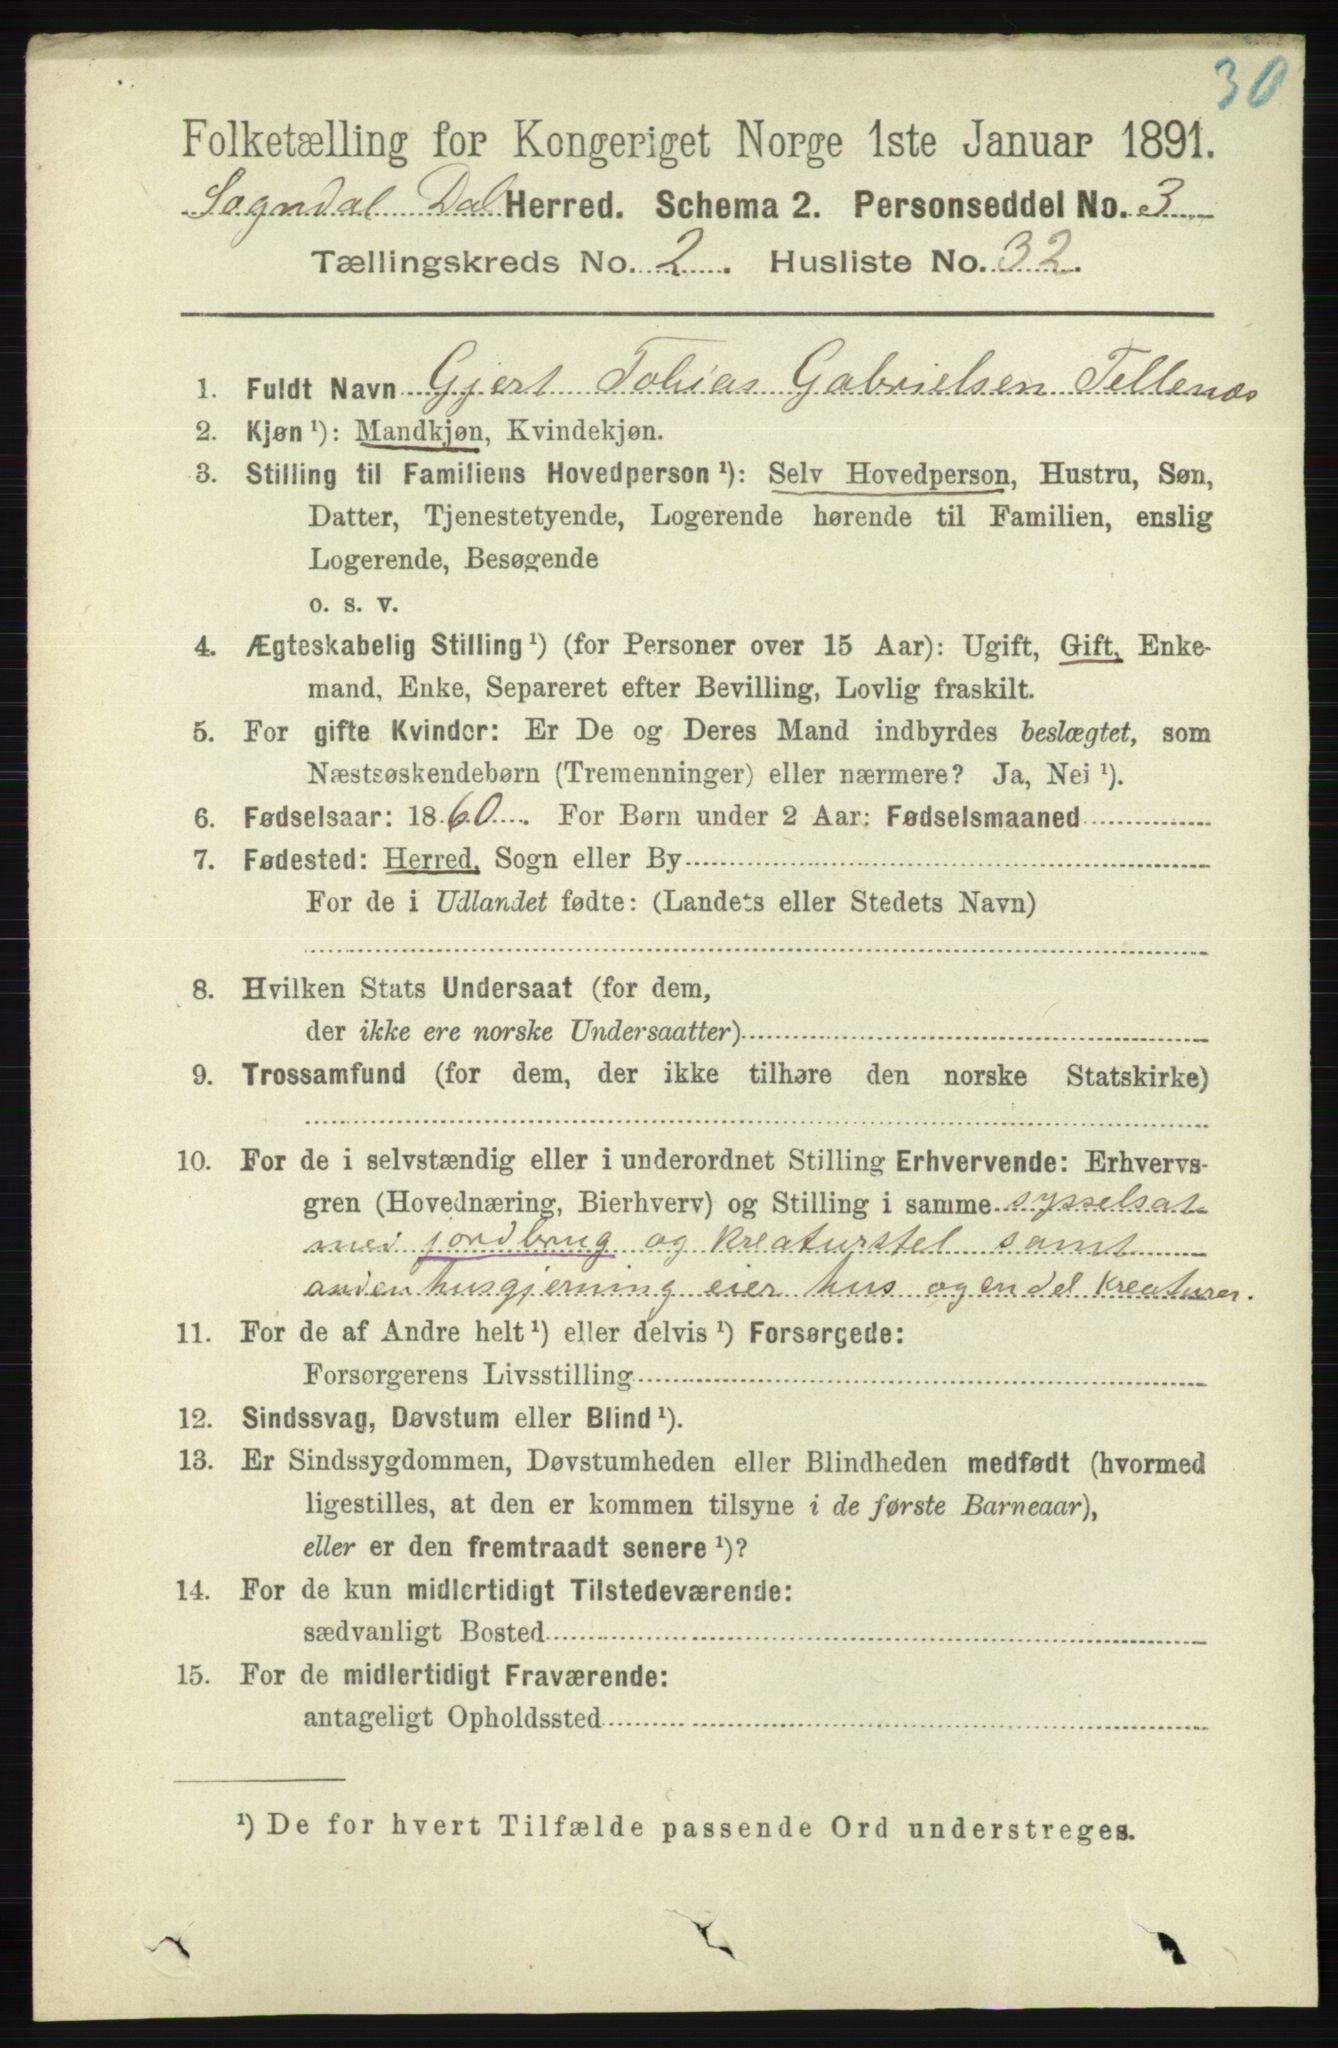 30
Folketælling for Kongeriget Norge 1ste Januar 1891.
Sogndal Dal Herred. Schema 2. Personseddel No. 3
Tællingskreds No. 2. Husliste No. 32.
1. Fuldt Navn Gjert Tobias Gabrielsen Tellenæs
2. Kjøn ¹): Mandkjøn, Kvindekjøn.
3. Stilling til Familiens Hovedperson ¹): Selv Hovedperson, Hustru, Søn,
Datter, Tjenestetyende, Logerende hørende til Familien, enslig
Logerende, Besøgende
o. s. v.
4. Ægteskabelig Stilling ¹) (for Personer over 15 Aar): Ugift, Gift, Enke-
mand, Enke, Separeret efter Bevilling, Lovlig fraskilt.
5. For gifte Kvinder: Er De og Deres Mand indbyrdes beslægtet, som
Næstsøskendebørn (Tremenninger) eller nærmere? Ja, Nei ¹).
6. Fødselsaar: 1860. For Børn under 2 Aar: Fødselsmaaned
7. Fødested: Herred, Sogn eller By
For de i Udlandet fødte: (Landets eller Stedets Navn)
8. Hvilken Stats Undersaat (for dem,
der ikke ere norske Undersaatter)
9. Trossamfund (for dem, der ikke tilhøre den norske Statskirke)
10. For de i selvstændig eller i underordnet Stilling Erhvervende: Erhvervs-
gren (Hovednæring, Bierhverv) og Stilling i samme sysselsat
med jordbrug og kreaturstel samt
anden husgjerning eier hus og en del kreaturer.
11. For de af Andre helt ¹) eller delvis ¹) Forsørgede:
Forsørgerens Livsstilling
12. Sindssvag, Døvstum eller Blind ¹).
13. Er Sindssygdommen, Døvstumheden eller Blindheden medfødt (hvormed
ligestilles, at den er kommen tilsyne i de første Barneaar),
eller er den fremtraadt senere ¹)?
14. For de kun midlertidigt Tilstedeværende:
sædvanligt Bosted
15. For de midlertidigt Fraværende:
antageligt Opholdssted
¹) De for hvert Tilfælde passende Ord understreges.